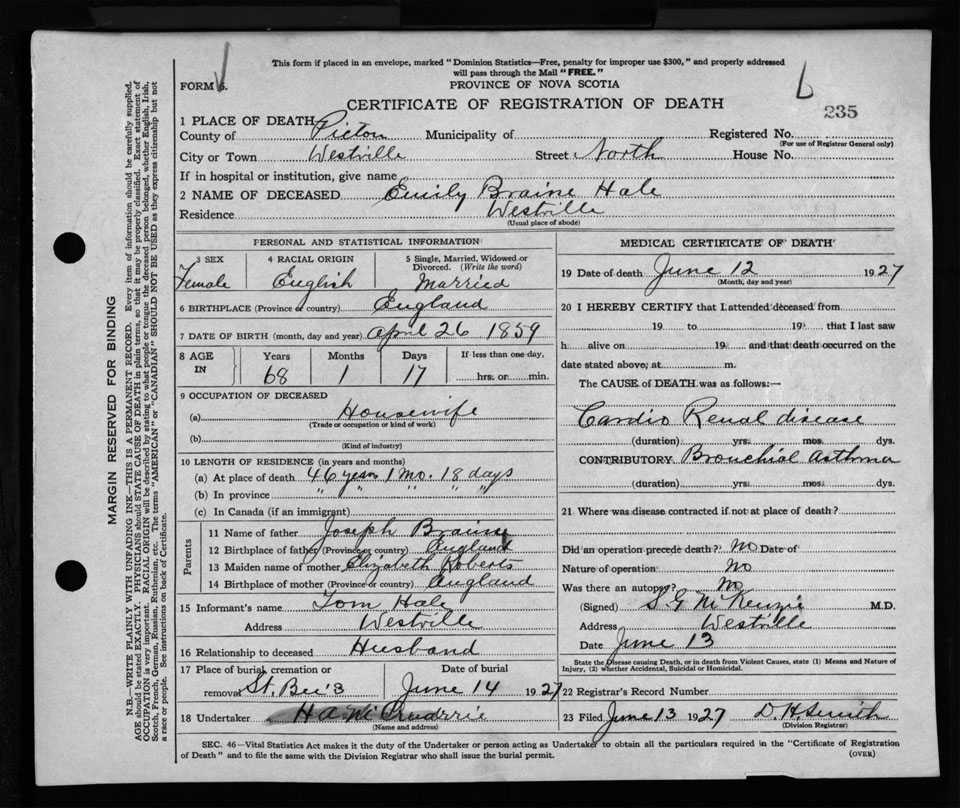 This form if placed in an envelope, marked "Dominion Statistics—Free, penalty for improper use $300," and properly addressed
will pass through the Mail "FREE."
FORM 6.
PROVINCE OF NOVA SCOTIA
b
235
CERTIFICATE OF REGISTRATION OF DEATH
1 PLACE OF DEATH
County of Pictou Municipality of Registered No.
(For use of Registrar General only)
City or Town Westville Street North House No.
If in hospital or institution, give name
2 NAME OF DECEASED Emily Braine Hale
Residence Westville
(Usual place of abode)
PERSONAL AND STATISTICAL INFORMATION
3 SEX 4 RACIAL ORIGIN 5 Single, Married, Widowed or Divorced. (Write the word)
Female English Married
6 BIRTHPLACE (Province or country) England
7 DATE OF BIRTH (month, day and year) April 26 1859
8 AGE IN Years Months Days If less than one day,
68 1 17 hrs. or min.
9 OCCUPATION OF DECEASED
(a) Housewife
(Trade or occupation or kind of work)
(b)
(Kind of industry)
10 LENGTH OF RESIDENCE (in years and months)
(a) At place of death 46 years 1 mo. 18 days
(b) In province " " " " "
(c) In Canada (if an immigrant)
Parents
11 Name of father Joseph Braine
12 Birthplace of father (Province or country) England
13 Maiden name of mother Elizabeth Roberts
14 Birthplace of mother (Province or country) England
15 Informant's name Tom Hale
Address Westville
16 Relationship to deceased Husband
17 Place of burial, cremation or removal St. Bee's Date of burial June 14 1927
18 Undertaker H A
(Name and address)
MEDICAL CERTIFICATE OF DEATH
19 Date of death June 12 1927
(Month, day and year)
20 I HEREBY CERTIFY that I attended deceased from
19 to 19 that I last saw
h alive on 19 and that death occurred on the
date stated above, at m.
The CAUSE of DEATH was as follows:—
Cardio Renal disease
(duration) yrs. mos. dys.
CONTRIBUTORY Bronchial Asthma
(duration) yrs. mos. dys.
21 Where was disease contracted if not at place of death?
Did an operation precede death? No Date of
Nature of operation No
Was there an autopsy? No
(Signed) S G McKenzie M.D.
Address Westville
Date June 13
State the Disease causing Death, or in death from Violent Causes, state (1) Means and Nature of
Injury, (2) whether Accidental, Suicidal or Homicidal.
22 Registrar's Record Number
23 Filed June 13 1927 D H Smith
(Division Registrar)
SEC. 46—Vital Statistics Act makes it the duty of the Undertaker or person acting as Undertaker to obtain all the particulars required in the "Certificate of Registration
of Death" and to file the same with the Division Registrar who shall issue the burial permit.
(OVER)
MARGIN RESERVED FOR BINDING
N.B.—WRITE PLAINLY WITH UNFADING INK—THIS IS A PERMANENT RECORD. Every item of information should be carefully supplied.
AGE should be stated EXACTLY. PHYSICIANS should STATE CAUSE OF DEATH in plain terms, so that it may be properly classified. Exact statement of
OCCUPATION is very important. RACIAL ORIGIN will be described by stating to what people or tongue the deceased person belonged, whether English, Irish,
Scotch, French, German, Russian, Ruthenian, etc. The terms "AMERICAN" or "CANADIAN" SHOULD NOT BE USED as they express citizenship but not
a race or people. See instructions on back of Certificate.